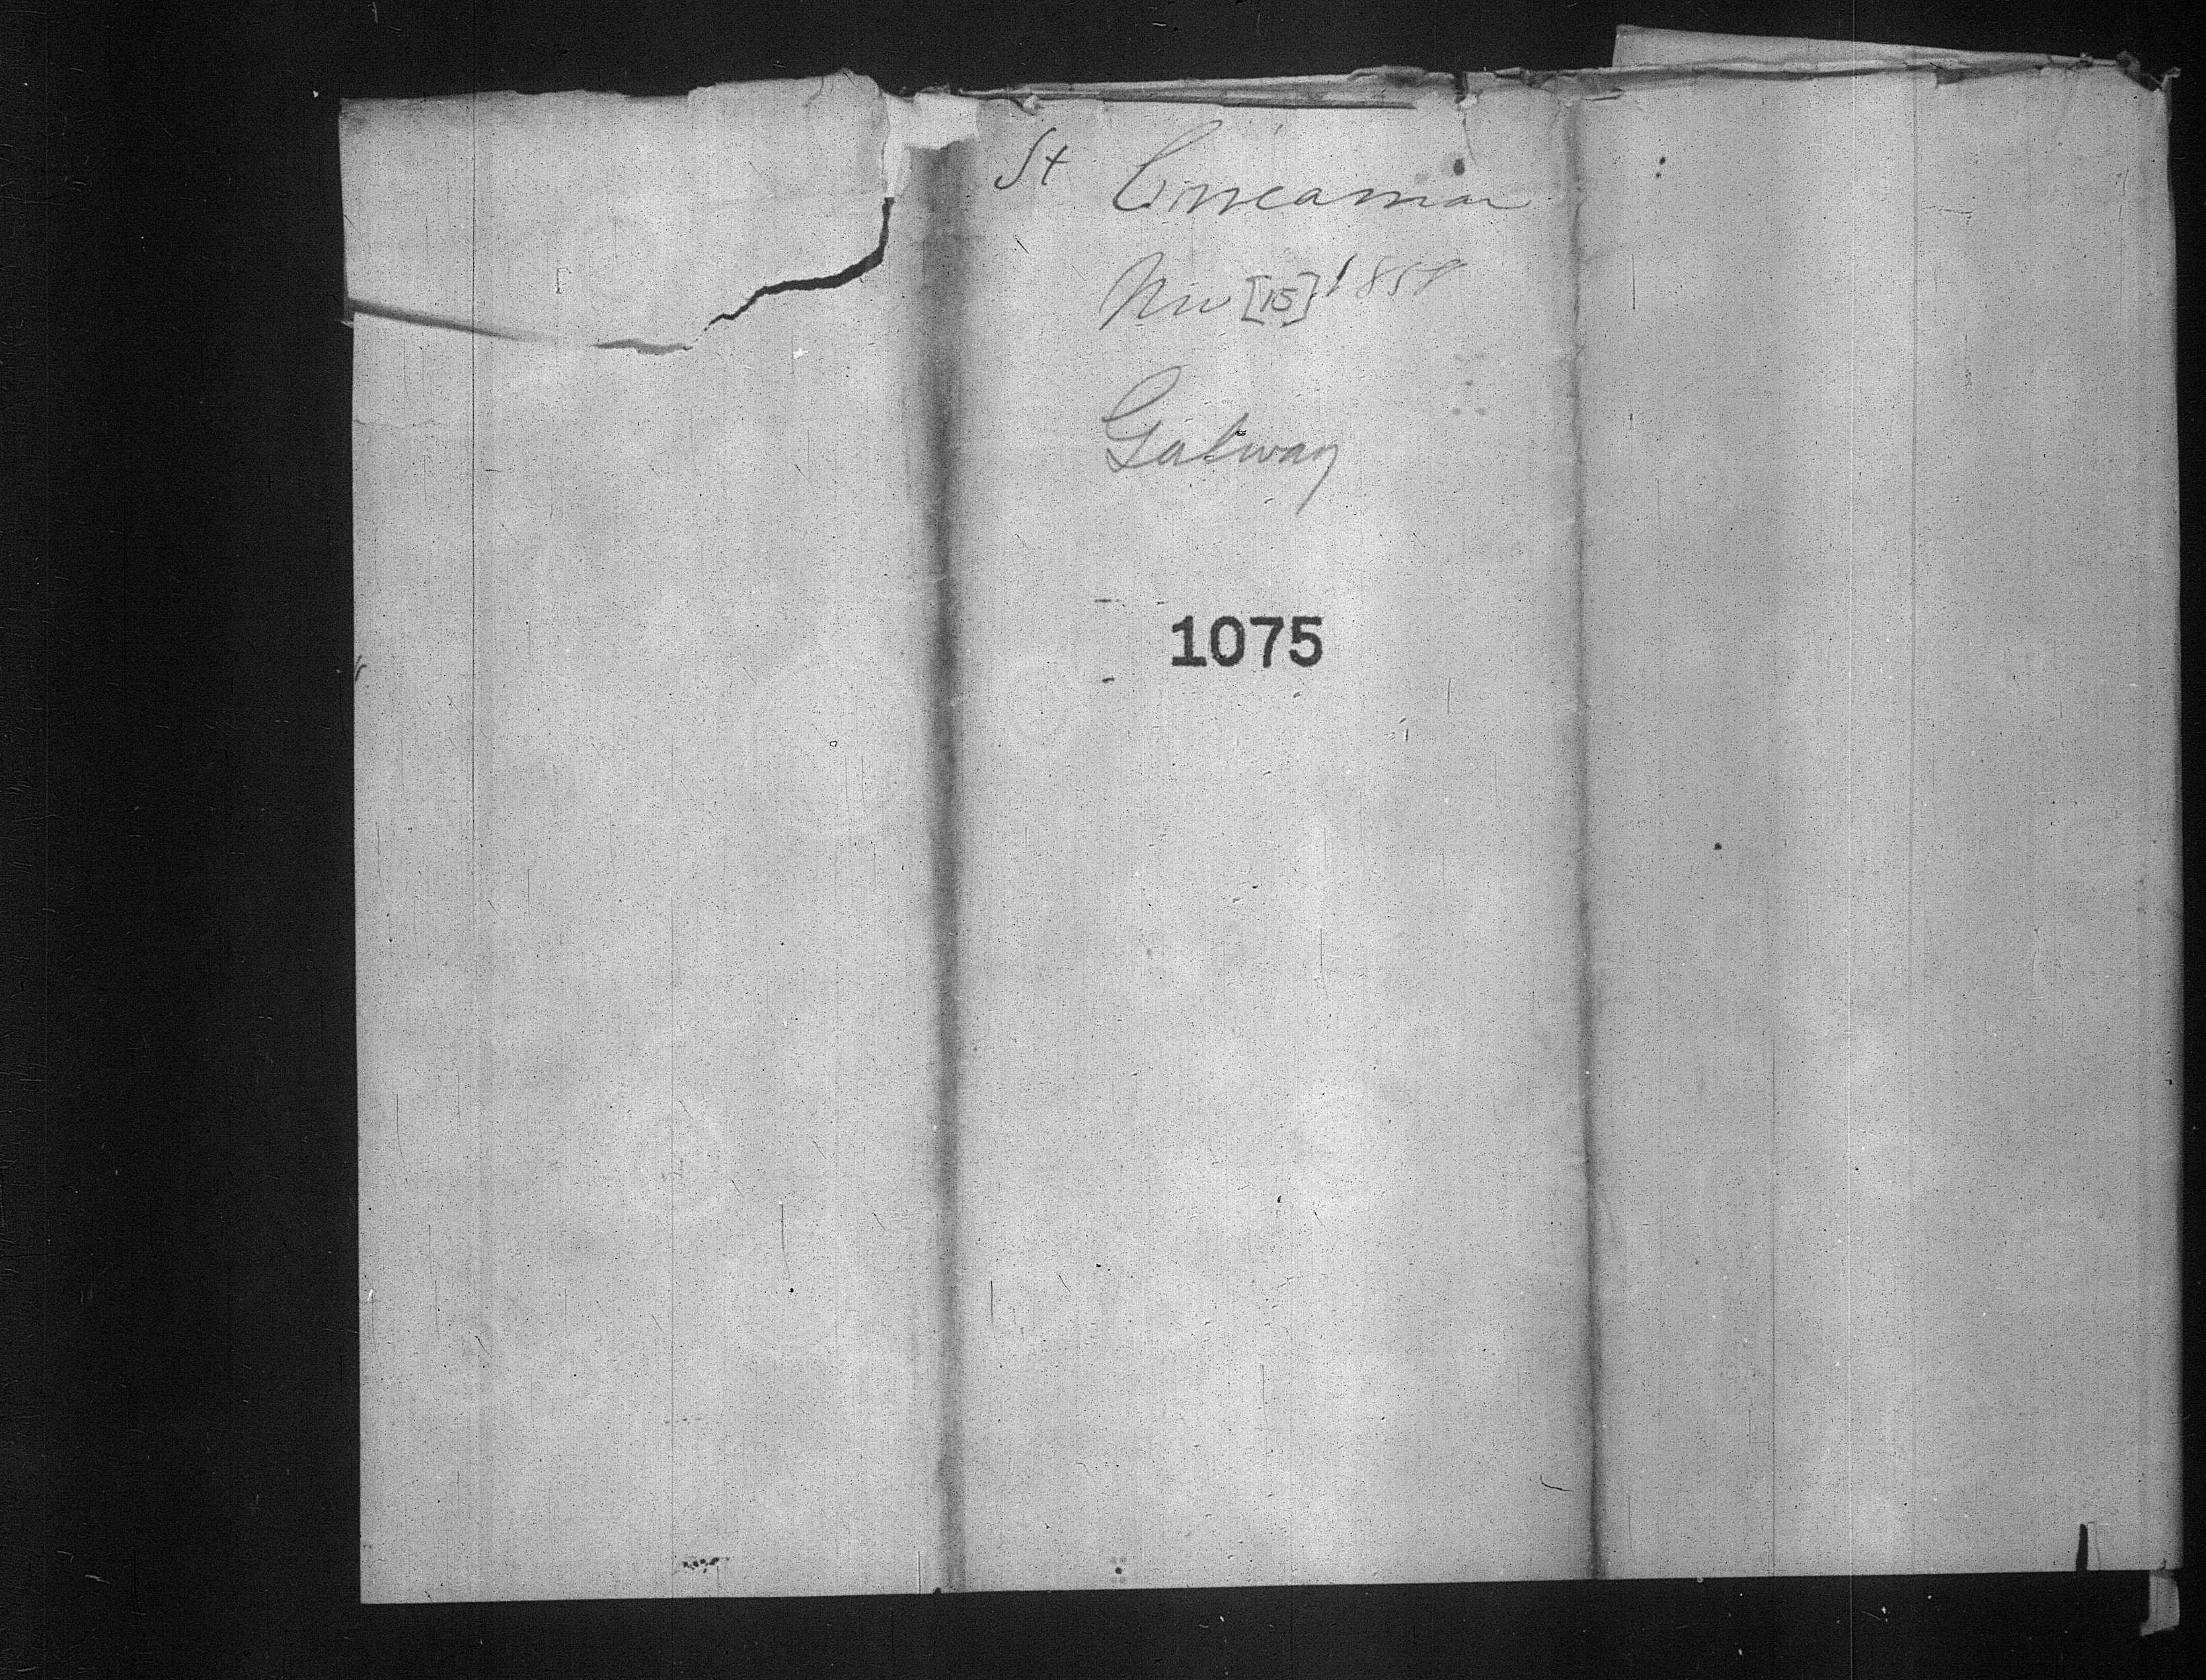 St Cinneamar
Nov [15] 1859
Galway
1075